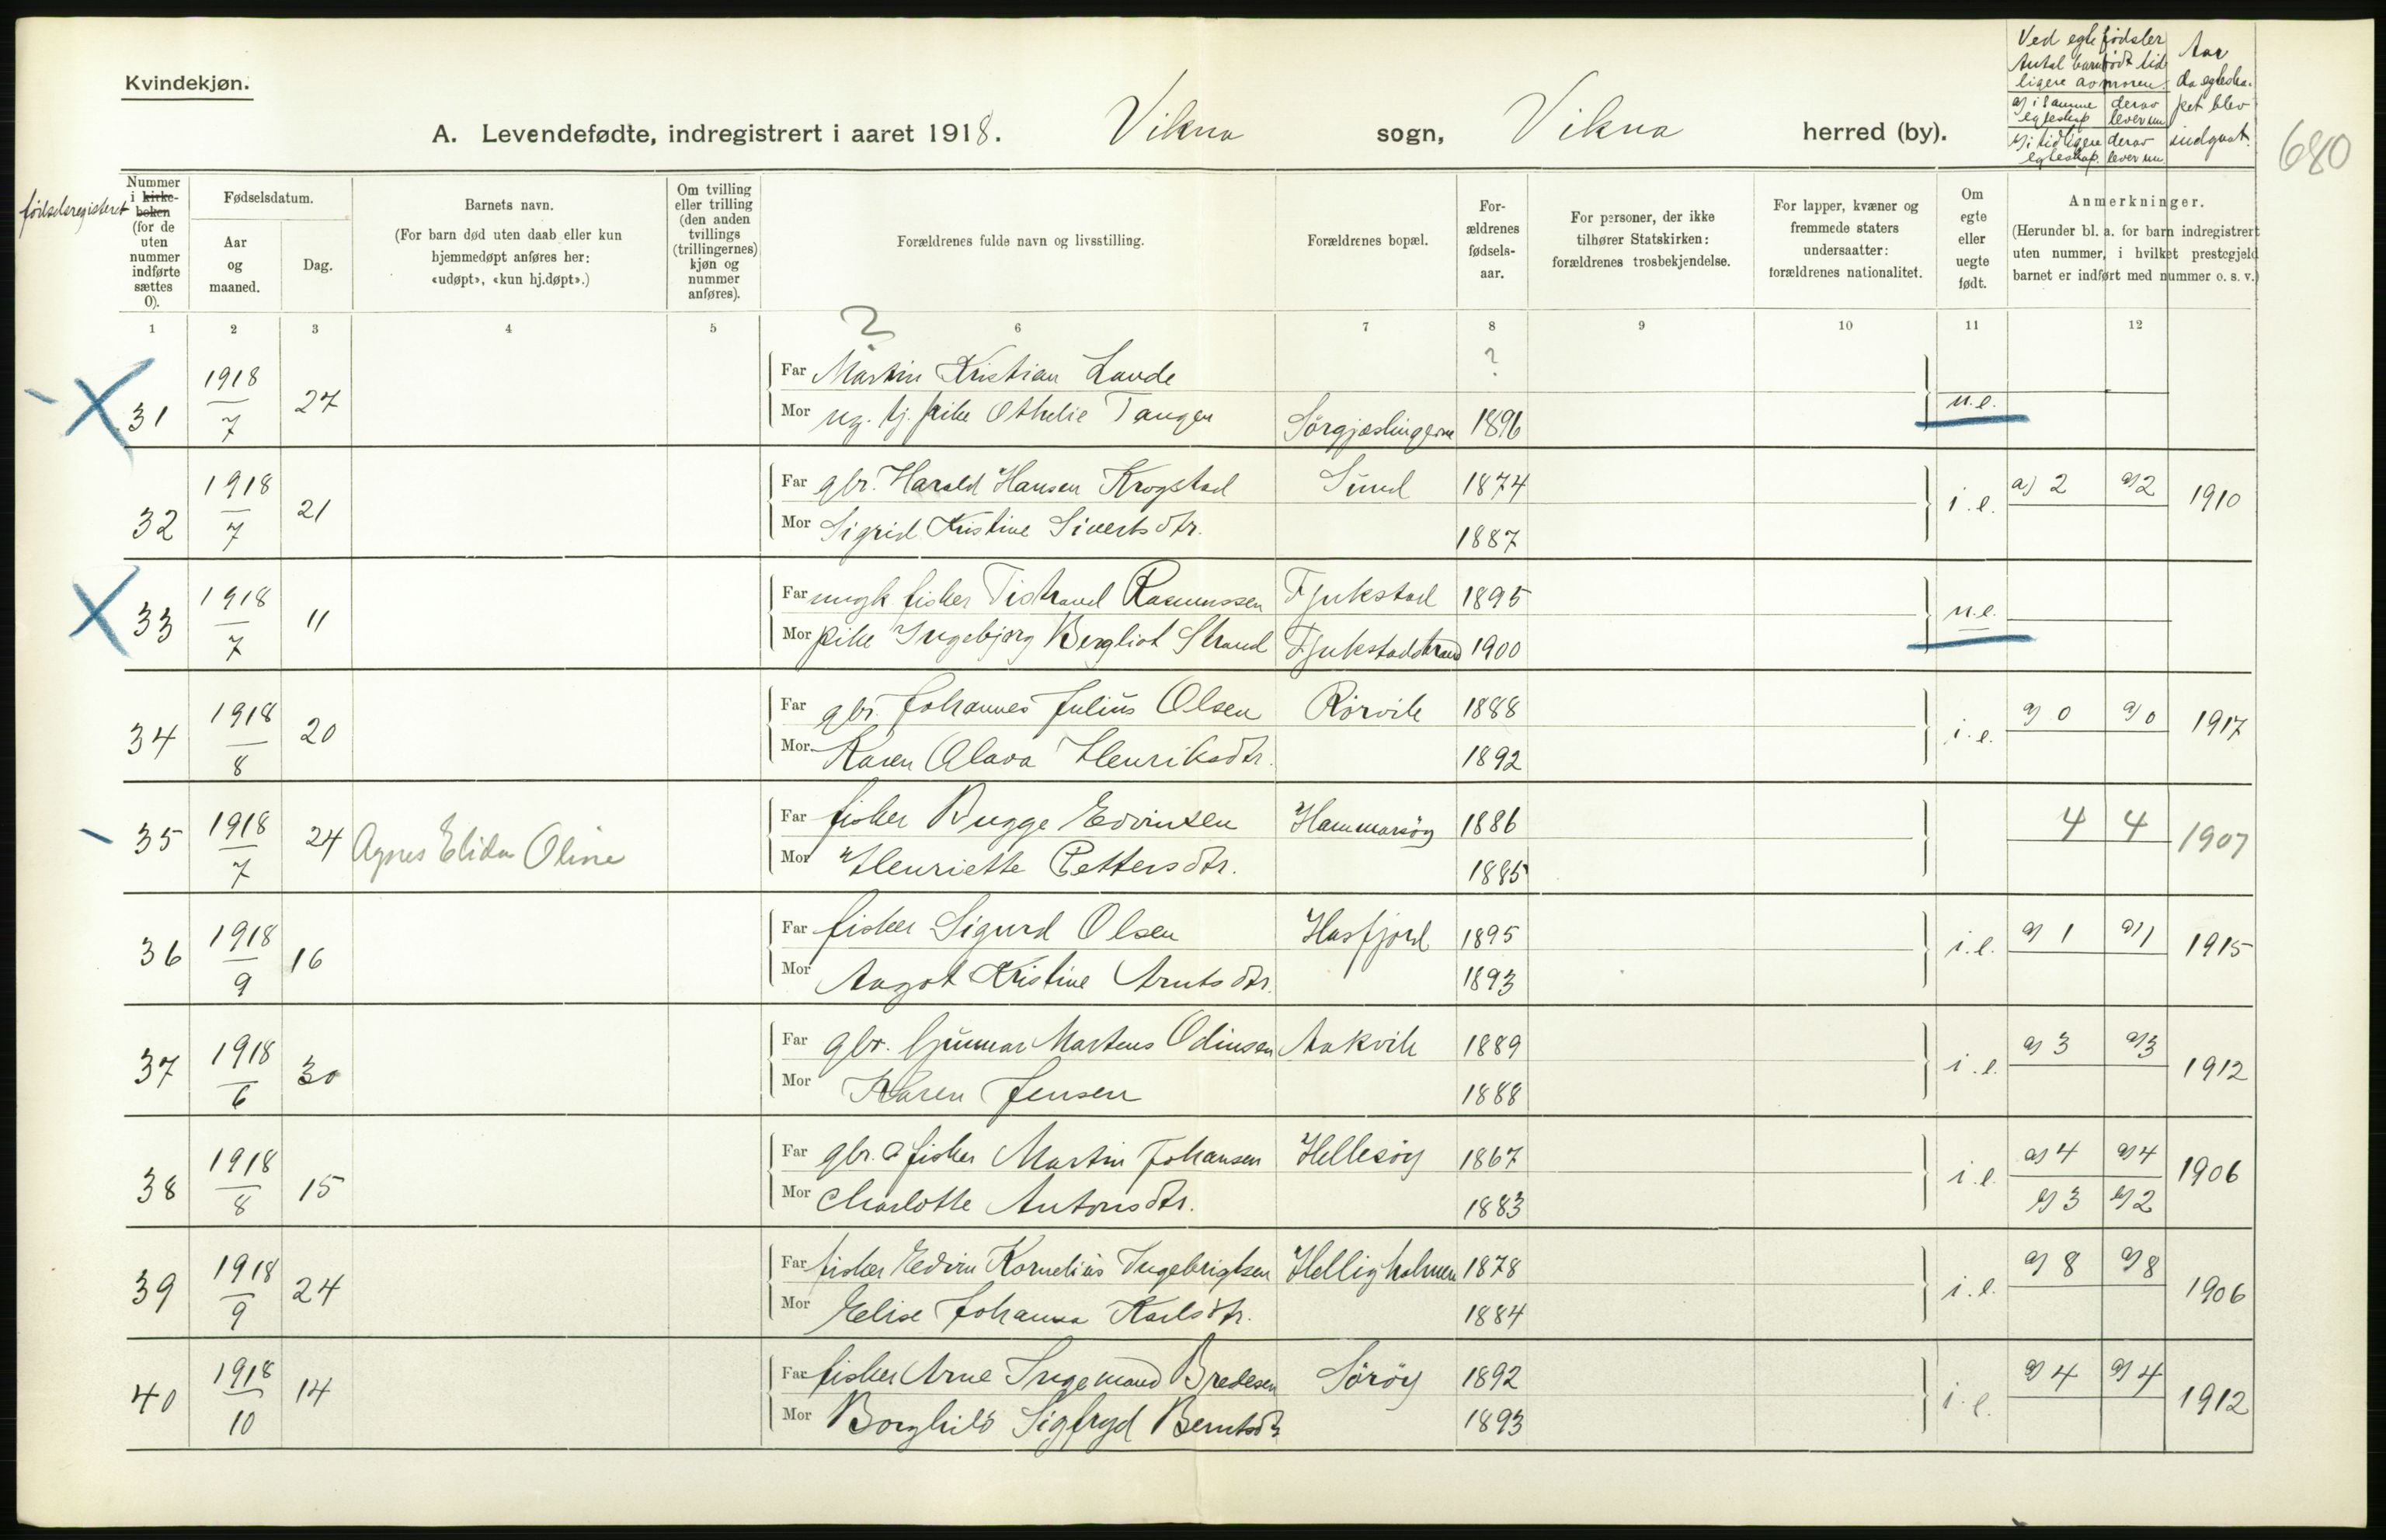 Kvindekjøn.
A. Levendefødte, indregistrert i aaret 1918. Vikna sogn, Vikna herred (by).
Ved egte fødsler
Antal barn født tid
ligere av moren.
a) i samme egteskap
derav lever nu
b) i tidligere egteskap.
derav lever nu
Aar
da egteska-
pet blev
indgaat.
680
fødselsregisteret
Nummer
i kirke-
boken
(for de
uten
nummer
indførte
sættes
0).
Fødselsdatum.
Aar
og
maaned.
Dag.
Barnets navn.
(For barn død uten daab eller kun
hjemmedøpt anføres her:
«udøpt», «kun hj.døpt».)
Om tvilling
eller trilling
(den anden
tvillings
(trillingernes)
kjøn og
nummer
anføres).
Forældrenes fulde navn og livsstilling.
Forældrenes bopæl.
For-
ældrenes
fødsels-
aar.
For personer, der ikke
tilhører Statskirken:
forældrenes trosbekjendelse.
For lapper, kvæner og
fremmede staters
undersaatter:
forældrenes nationalitet.
Om
egte
eller
uegte
født.
Anmerkninger.
(Herunder bl. a. for barn indregistrert
uten nummer, i hvilket prestegjeld
barnet er indført med nummer o. s. v.)
1 2 3 4 5 6 7 8 9 10 11 12
?
31 1918/7 27 Far Martin Kristian Lande ?
Mor ug. tj. pike Othelie Tangen Sørgjæslingerne 1896 u.e.
32 1918/7 21 Far gbr. Harald Hansen Krogstad Sund 1874 i.e. a) 2 a) 2 1910
Mor Sigrid Kristine Sivertsdtr. 1887
33 1918/7 11 Far ungk fisker Tidrand Rasmussen Fjukstad 1895 u.e.
Mor pike Ingebjørg Bergliot Strand Fjukstadstrand 1900
34 1918/8 20 Far gbr. Johannes Julius Olsen Rørvik 1888 i.e. a) 0 a) 0 1917
Mor Karen Olava Henriksdtr. 1892
35 1918/7 24 Agnes Elida Oline Far fisker Bugge Edvinsen Hammarsøy 1886 4 4 1907
Mor Henriette Pettersdtr. 1885
36 1918/9 16 Far fisker Sigurd Olsen Hasfjord 1895 i.e. a) 1 a) 1 1915
Mor Aagot Kristine Arntsdtr. 1893
37 1918/6 30 Far gbr. Gunnar Martens Odinsen Aakvik 1889 i.e. a) 3 a) 3 1912
Mor Karen Jensen 1888
38 1918/8 15 Far gbr. & fisker Martin Johansen Hellesøy 1867 i.e. a) 4 a) 4 1906
Mor Charlotte Antonsdtr. 1883 b) 3 b) 2
39 1918/9 24 Far fisker Edvin Kornelius Ingebrigtsen Helligholmen 1878 i.e. a) 8 a) 8 1906
Mor Elise Johanna Karlsdtr. 1884
40 1918/10 14 Far fisker Arne Ingemand Bredesen Sørøy 1892 i.e. a) 4 a) 4 1912
Mor Borghild Sigfryd Berntsdtr 1893